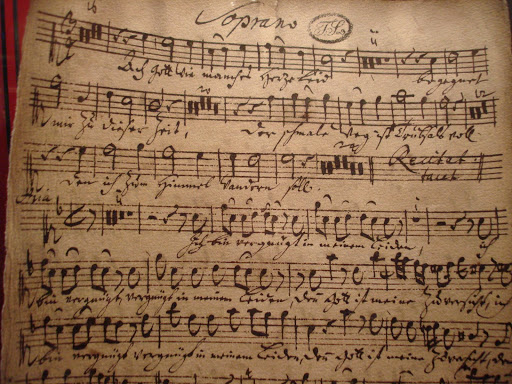 16 Soprano 11
Ach Gott wie manches Herzeleid begegnet
12
mir zu dieser Zeit, Der schmale Weg ist Trübsals voll
Recitat
tacet
Den ich zum Himmel wandern soll.
Aria
Ich bin vergnügt in meinem Leiden, ich
bin vergnügt, vergnügt in meinem Leiden, den Gott ist meine Zuversicht, ich
bin vergnügt vergnügt in meinem Leiden, den Gott ist meine Zuversicht, den